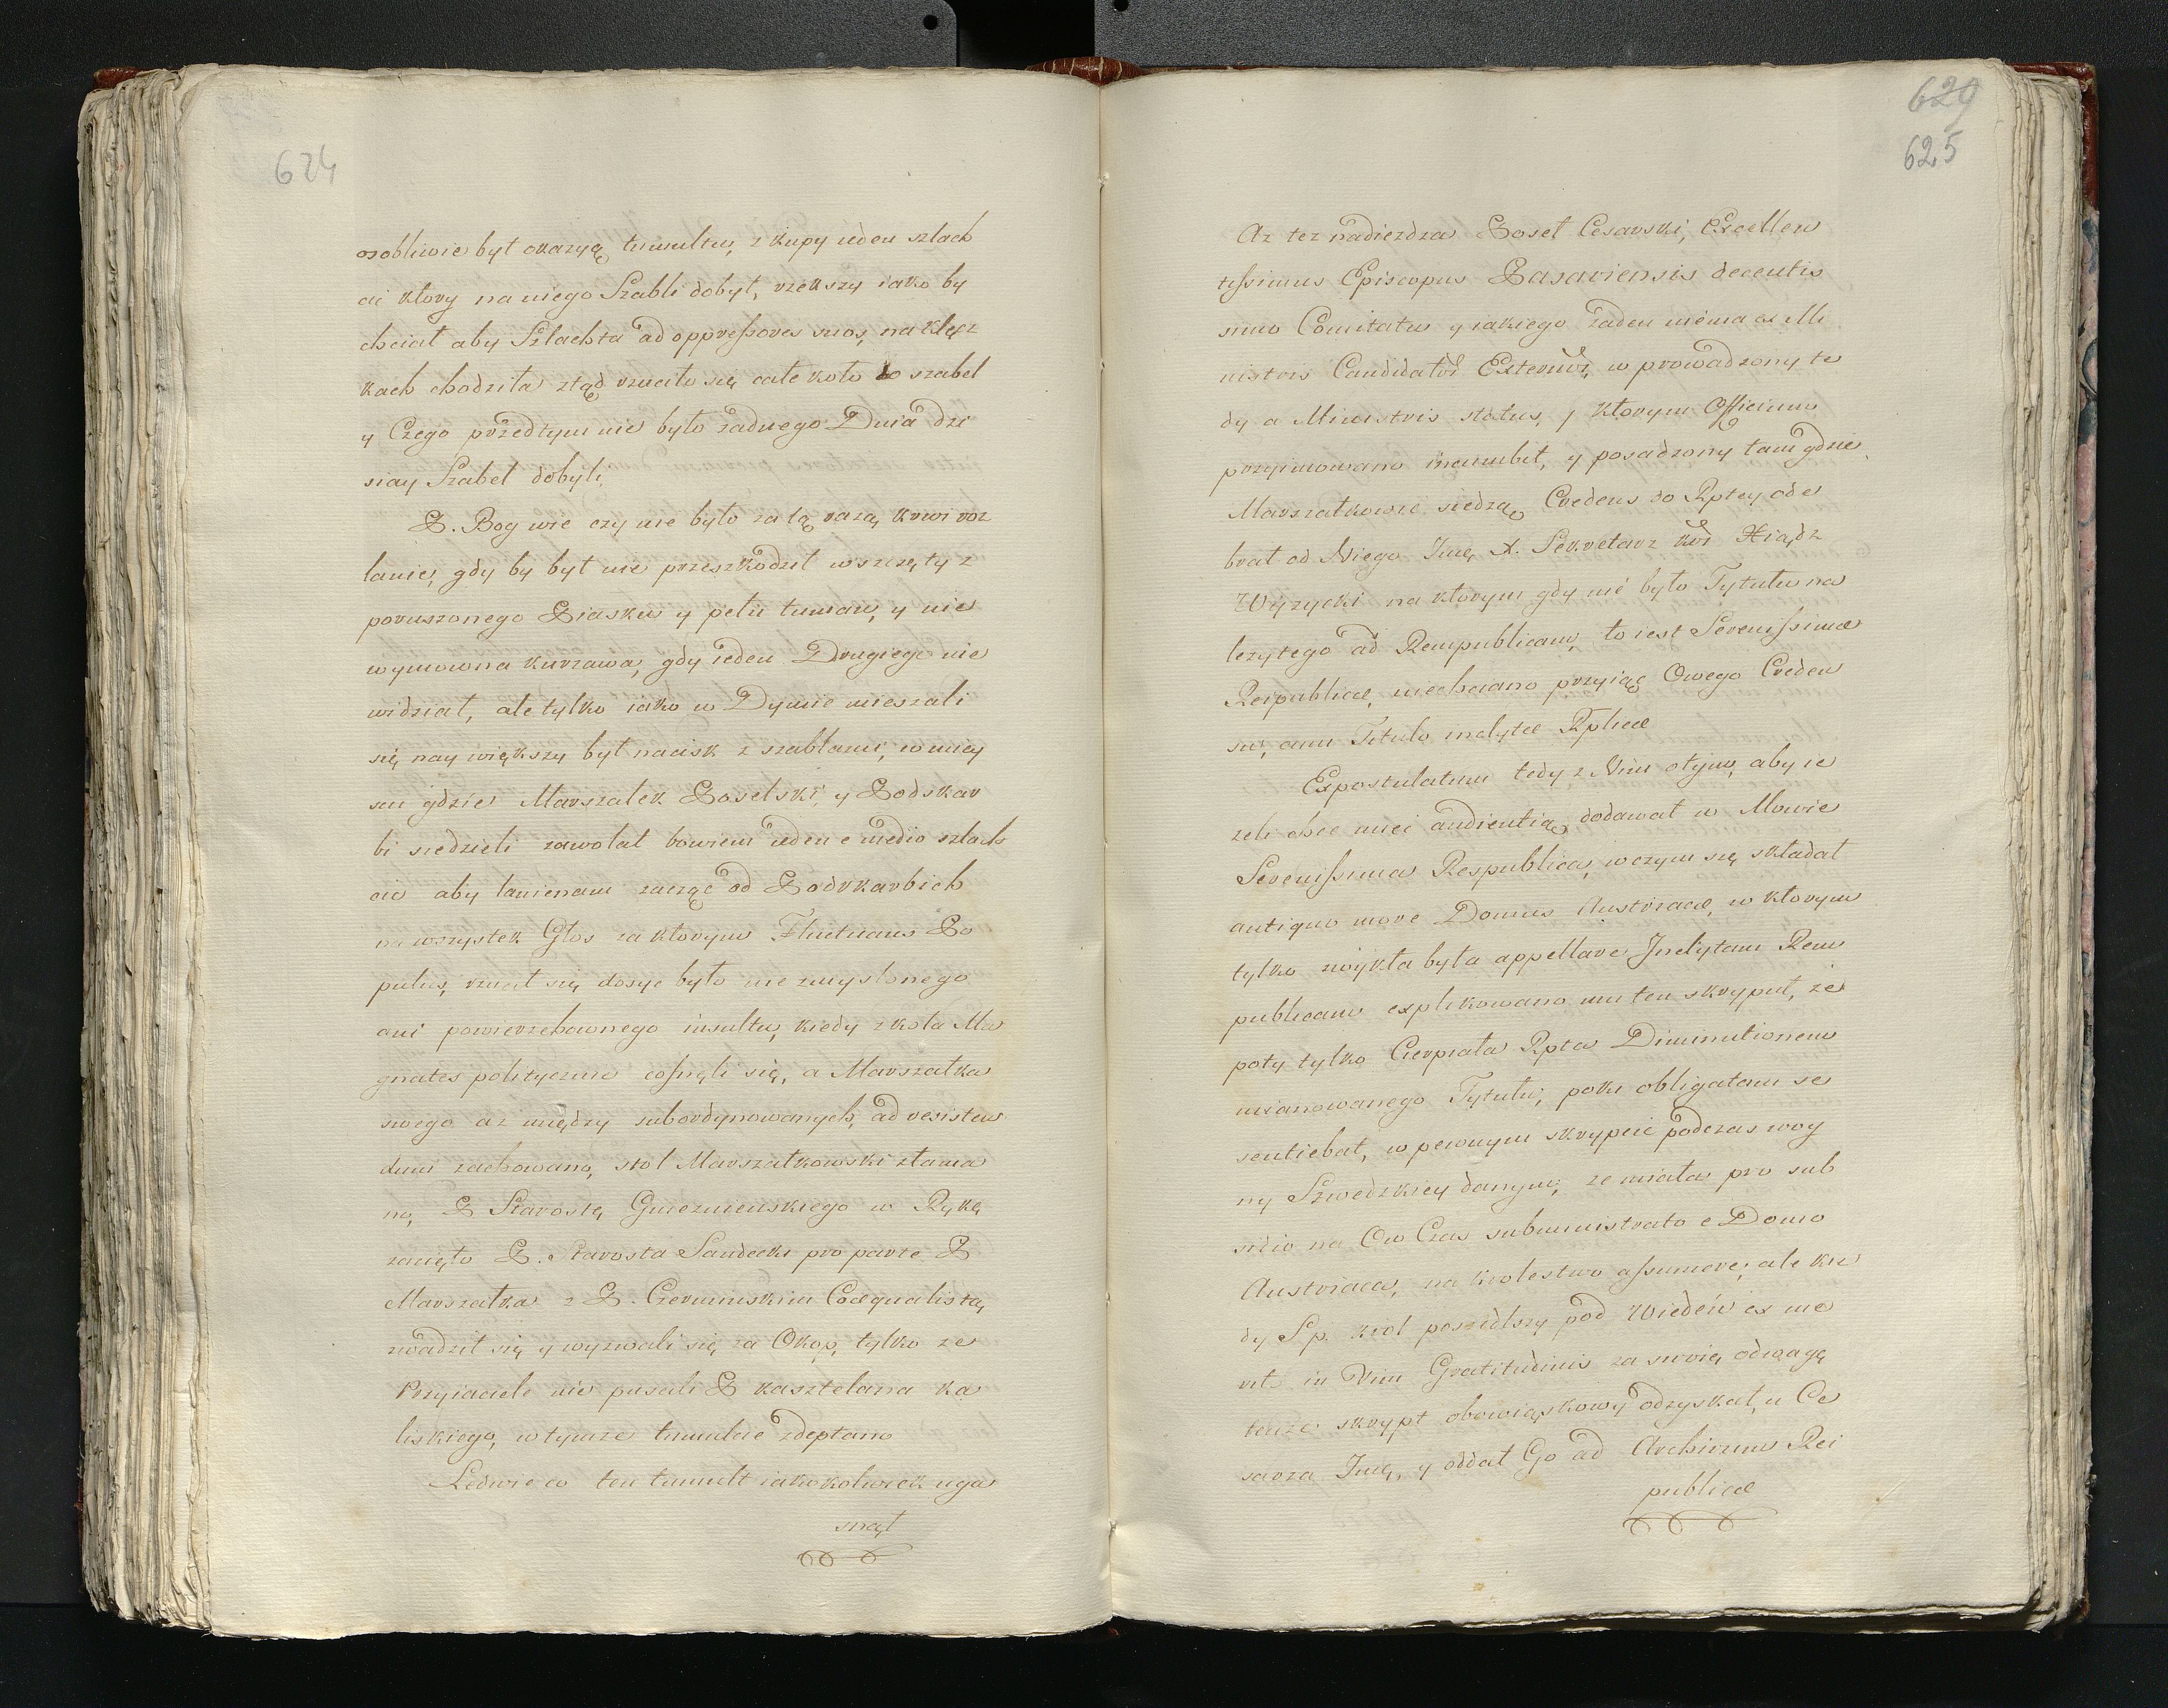 624
osobliwie był okazyą tumultu, z kupy ieden szlach
cic ktory na niego Szabli dobył, rzekszy iako by
chciał aby Szlachta ad oppressores suos, na klęcz
kach chodziła ztąd rzuciło się całe koło do szabel
y Czego przedtym nie było żadnego Dnia dzi
siay Szabel dobyli.
P. Bog wie czy nie było za tą razą krwi roz
lanie, gdy by był nie przeszkodził wszczęty z
poruszonego Piasku y pełii tuman, y nie
wymowna kurzawa, gdy ieden Drugiego nie
widział, ale tylko iako w Dymie mieszali
się nay większy był nacisk z szablami, w miey
scu gdzie Marszałek Poselski, y Podskar
bi siedzieli zawołał bowiem ieden e medio szlach
cic aby lanienam zacząć od Podskarbich
na wszystek Głos za ktorym Fluctuans Po
pulus, rzucił się dosyc było nie zmyslonego
ani powierzchownego insultu, kiedy z koła Ma
gnates politycznie cofnęli się, a Marszałka
swego az między subordynowanych, ad resisten
dum zachowano, stoł Marszałkowski złama
no, P Starostę Gnieznienskiego w Rękę
zacięto P. Starosta Sandecki pro parte P
Marszałka z P. Czerminskim Coæqualistą,
zwadził się y wyzwali się za Okop, tylko ze
Przyiaciele nie puscili P kasztelana Ka
liskiego, w tymze tumulcie zdeptano
Ledwie co ten tumult iakokolwiek uga
snął
629
625
Az tez nadiezdza Poseł Cesarski, Excellen
tissimus Episcopus Passaviensis decentis
simo Comitatu y iakiego żaden niema ex Mi
nistris Candidatów Externów, w prowadzony te
dy a Ministris status, y ktorym Officium
przyimowano incumbit, y posadzony tam gdzie
Marszałkowie siedzą, Credens do Rptey ode
brał od Niego Jmę X. Sekretarz kor Xiądz
Wyzycki na ktorym gdy nie było Tytułu na
lezytego ad Rempublicam, to iest Serenissimæ
Reipublicæ, niechciano przyiąć Owego Creden
su, cum Titulo inclytæ Rplicæ
Expostulatum tedy z Nim otym, aby ie
zeli chce miec audientią, dodawał w Mowie
Serenissima Respublica, w czym się składał
antiquo more Domus Austriacæ, w ktorym
tylko zwykła była appellare Jnclytam Rem
publicam explikowano mu ten skrypuł, że
poty tylko Cierpiała Rpta Diminutionem
mianowanego Tytułu, poki obligatam se
sentiebat, w pewnym skrypcie podczas woy
ny Szwedzkiey danym, ze miała pro sub
sidio na Ow Czas subministrato e Domo
Austriaca, na krolestwo assumere; ale kie
dy S p. krol poszedłszy pod Wiedeń ex me
rit in Vim Gratitudinis za swoię odwagę
tenze skrypt obowiąskowy odzyskał, u Ce
sarza Jmę, y oddał Go ad Archivum Rei
publicæ